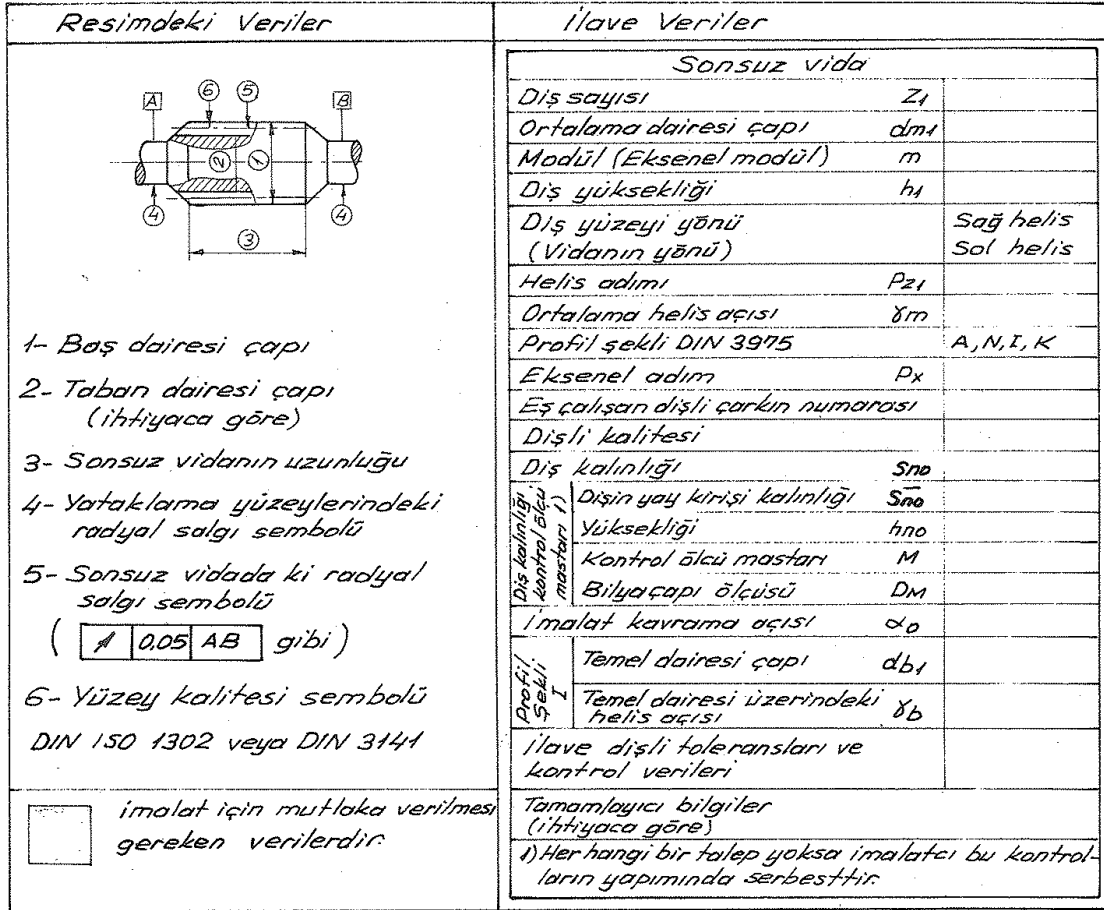 Resimdeki Veriler
İlave Veriler
A
6
5
B
2
1
4
4
3
1- Baş dairesi çapı
2- Taban dairesi çapı
(ihtiyaca göre)
3- Sonsuz vidanın uzunluğu
4- Yataklama yüzeylerindeki
radyal salgı sembolü
5- Sonsuz vidada ki radyal
salgı sembolü
( 0.05 AB gibi)
6- Yüzey kalitesi sembolü
DIN ISO 1302 veya DIN 3141
imalat için mutlaka verilmesi
gereken verilerdir.
Sonsuz vida
Diş sayısı Z1
Ortalama dairesi çapı dm1
Modül (Eksenel modül) m
Diş yüksekliği h1
Diş yüzeyi yönü Sağ helis
(Vidanın yönü) Sol helis
Helis adımı Pz1
Ortalama helis açısı γm
Profil şekli DIN 3975 A, N, I, K
Eksenel adım Px
Eş çalışan dişli çarkın numarası
Dişli kalitesi
Diş kalınlığı Sno
Diş kalınlığı
kontrol ölçü
mastarı 1)
Dişin yay kirişi kalınlığı S̅no
Yüksekliği hno
Kontrol ölçü mastarı M
Bilya çapı ölçüsü DM
İmalat kavrama açısı αo
Profil
Şekli
I
Temel dairesi çapı db1
Temel dairesi üzerindeki
helis açısı γb
İlave dişli toleransları ve
kontrol verileri
Tamamlayıcı bilgiler
(ihtiyaca göre)
1) Her hangi bir talep yoksa imalatcı bu kontrol-
ların yapımında serbesttir.